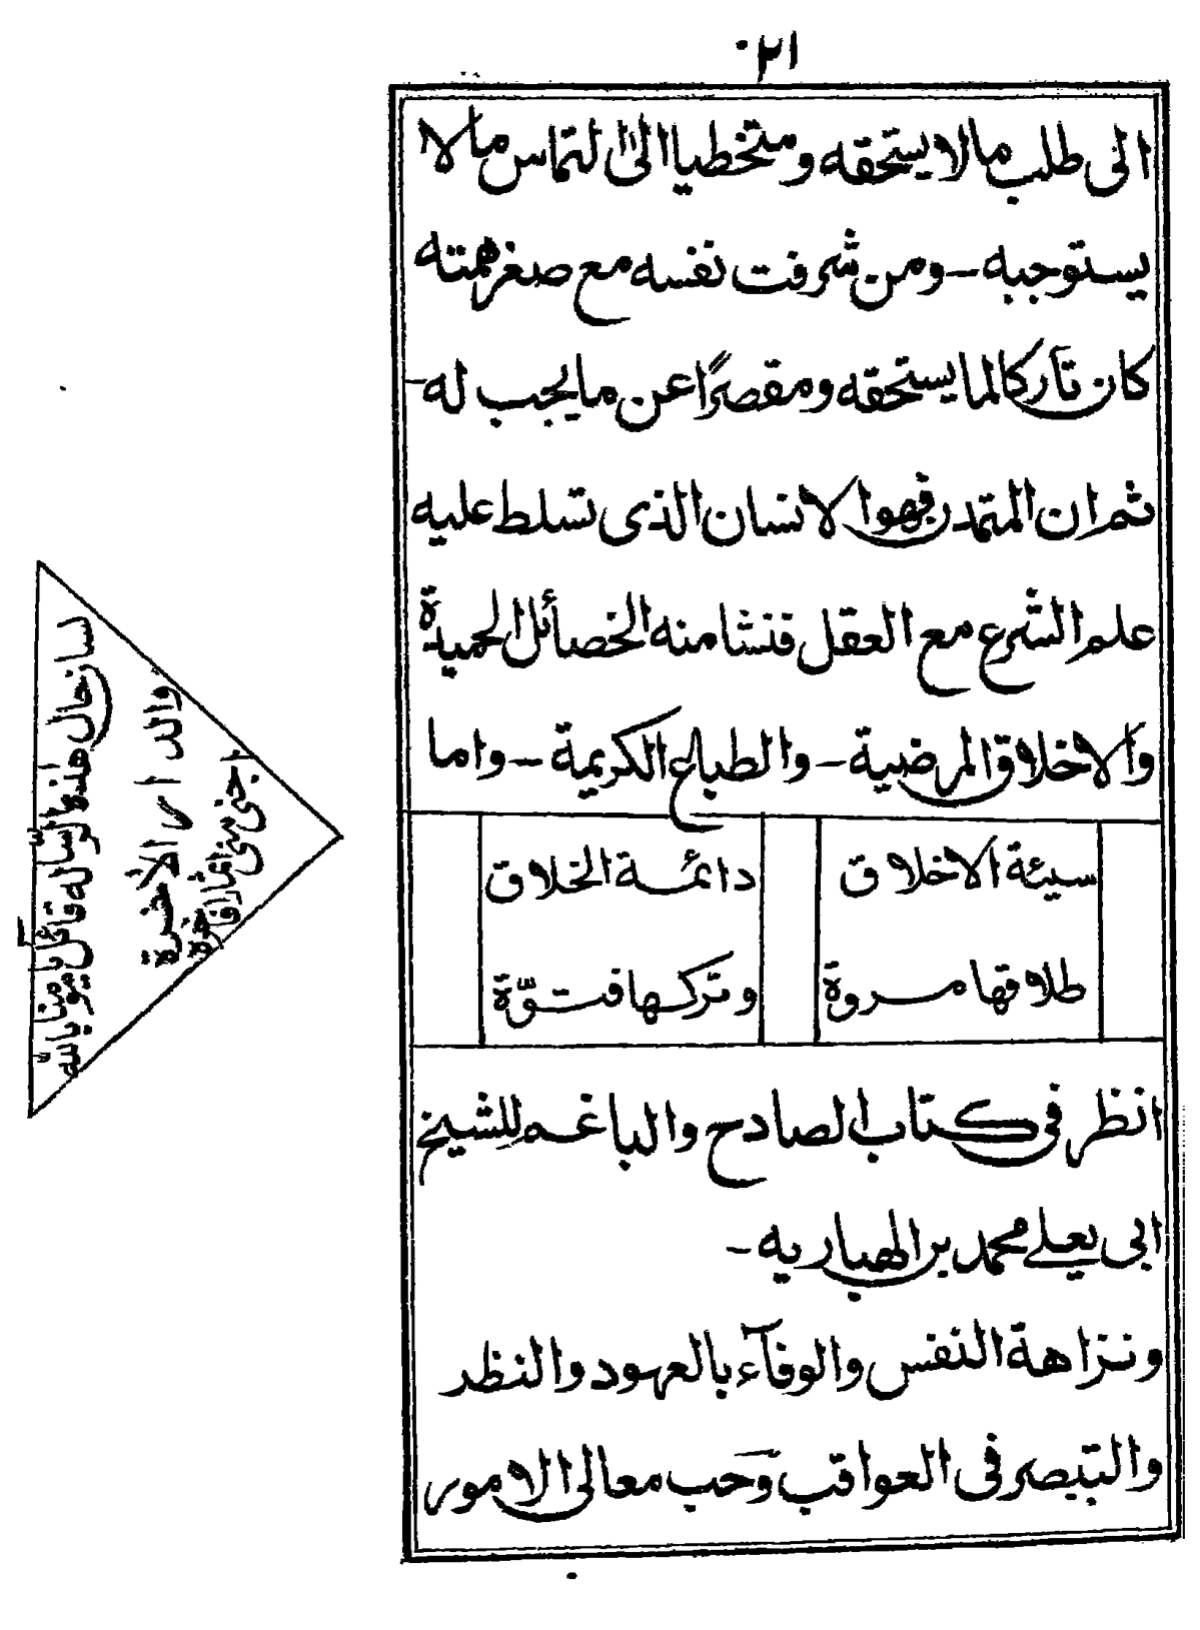 ٢١
الى طلب مالا يستحقه ومتخطيا الى التماس مالا
يستوجبه - ومن شرفت نفسه مع صغر همته
كان تاركا لما يستحقه ومقصرًا عن ما يجب له -
ثم ان المتمدن فهو الانسان الذى تسلط عليه
علم الشرع مع العقل فنشا منه الخصائل الحميدة
والاخلاق المرضية - والطباع الكريمة - واما
سيئة الاخلاق دائمة الخلاق
طلاقها مروة وتركها فتوّة
انظر فى كتاب الصادح والباغم للشيخ
ابى يعلے محمد بن الهباريه -
ونزاهة النفس والوفآء بالعهود والنظر
والتبصر فى العواقب وحب معالى الامور
لسان حال هذه الرساله قائل يا مؤمنا بالله
والدار الاخرة
اجنى منى اثمارا فاخرة